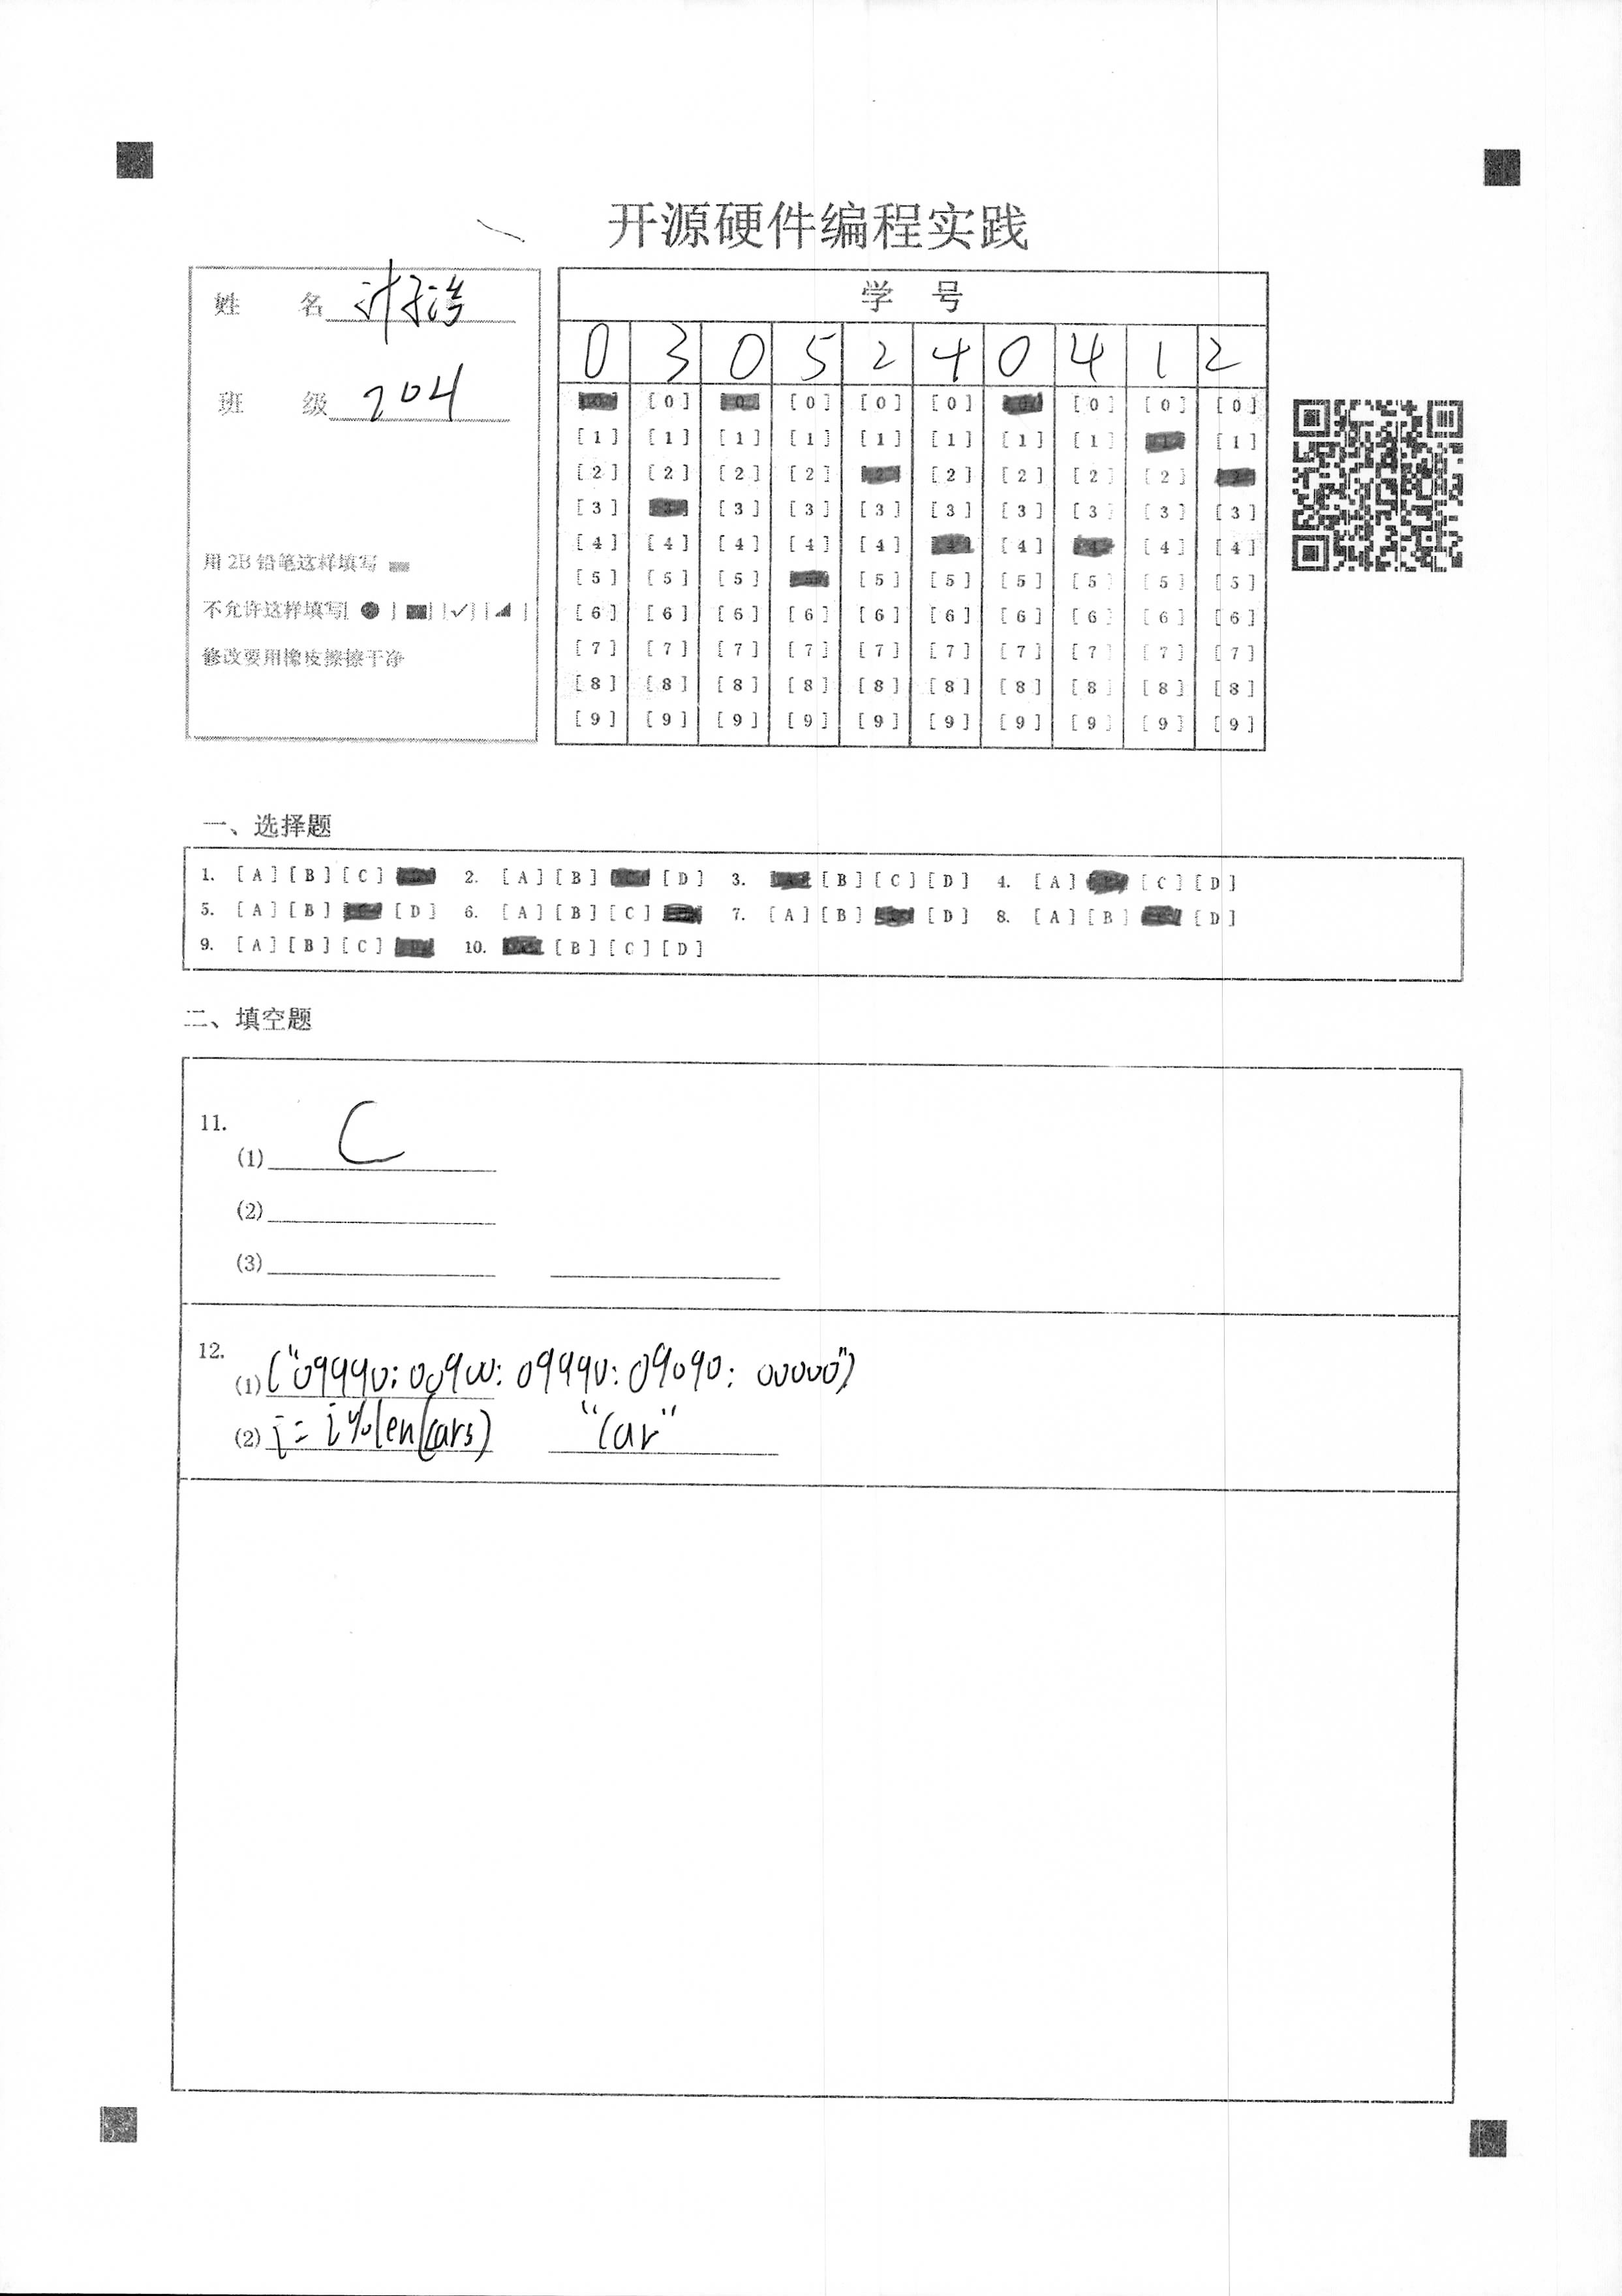 开源硬件编程实践
姓 名
班 级 204
用2B铅笔这样填写
不允许这样填写[ ● ] [■] [✓] [◢]
修改要用橡皮擦擦干净
学 号
0 3 0 5 2 4 0 4 1 2
[0] [0] [0] [0] [0] [0] [0] [0] [0] [0]
[1] [1] [1] [1] [1] [1] [1] [1] [1] [1]
[2] [2] [2] [2] [2] [2] [2] [2] [2] [2]
[3] [3] [3] [3] [3] [3] [3] [3] [3] [3]
[4] [4] [4] [4] [4] [4] [4] [4] [4] [4]
[5] [5] [5] [5] [5] [5] [5] [5] [5] [5]
[6] [6] [6] [6] [6] [6] [6] [6] [6] [6]
[7] [7] [7] [7] [7] [7] [7] [7] [7] [7]
[8] [8] [8] [8] [8] [8] [8] [8] [8] [8]
[9] [9] [9] [9] [9] [9] [9] [9] [9] [9]
一、选择题
1. [A] [B] [C] [D] 2. [A] [B] [C] [D] 3. [A] [B] [C] [D] 4. [A] [B] [C] [D]
5. [A] [B] [C] [D] 6. [A] [B] [C] [D] 7. [A] [B] [C] [D] 8. [A] [B] [C] [D]
9. [A] [B] [C] [D] 10. [A] [B] [C] [D]
二、填空题
11.
(1) C
(2)
(3)
12.
(1) ("09990:00900:09990:09090:00000")
(2) i=i%len(cars) "car"